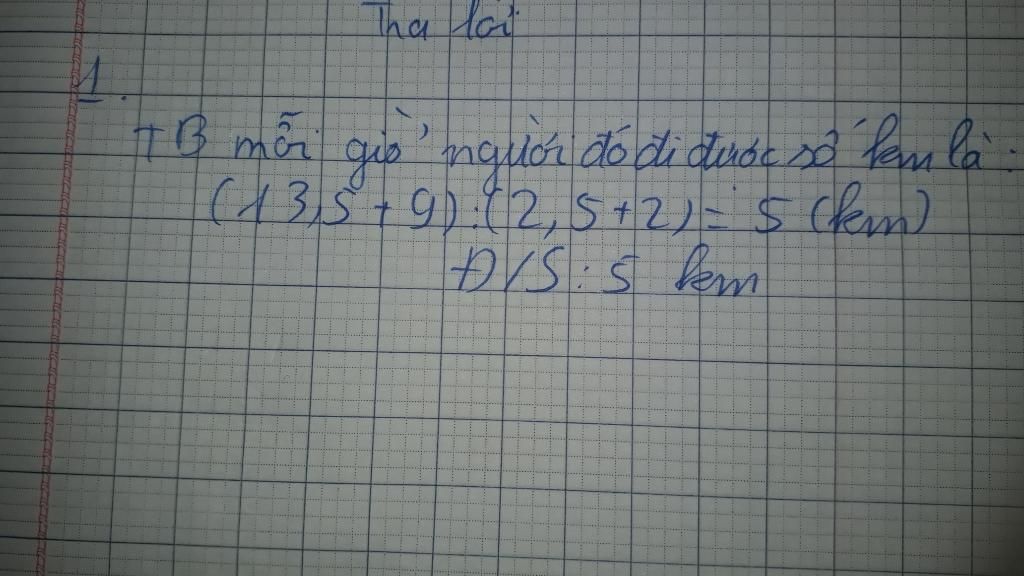 Trả lời
1.
TB mỗi giờ người đó đi được số km là:
(13,5 + 9) : (2,5+2) = 5 (km)
Đ/S : 5 km